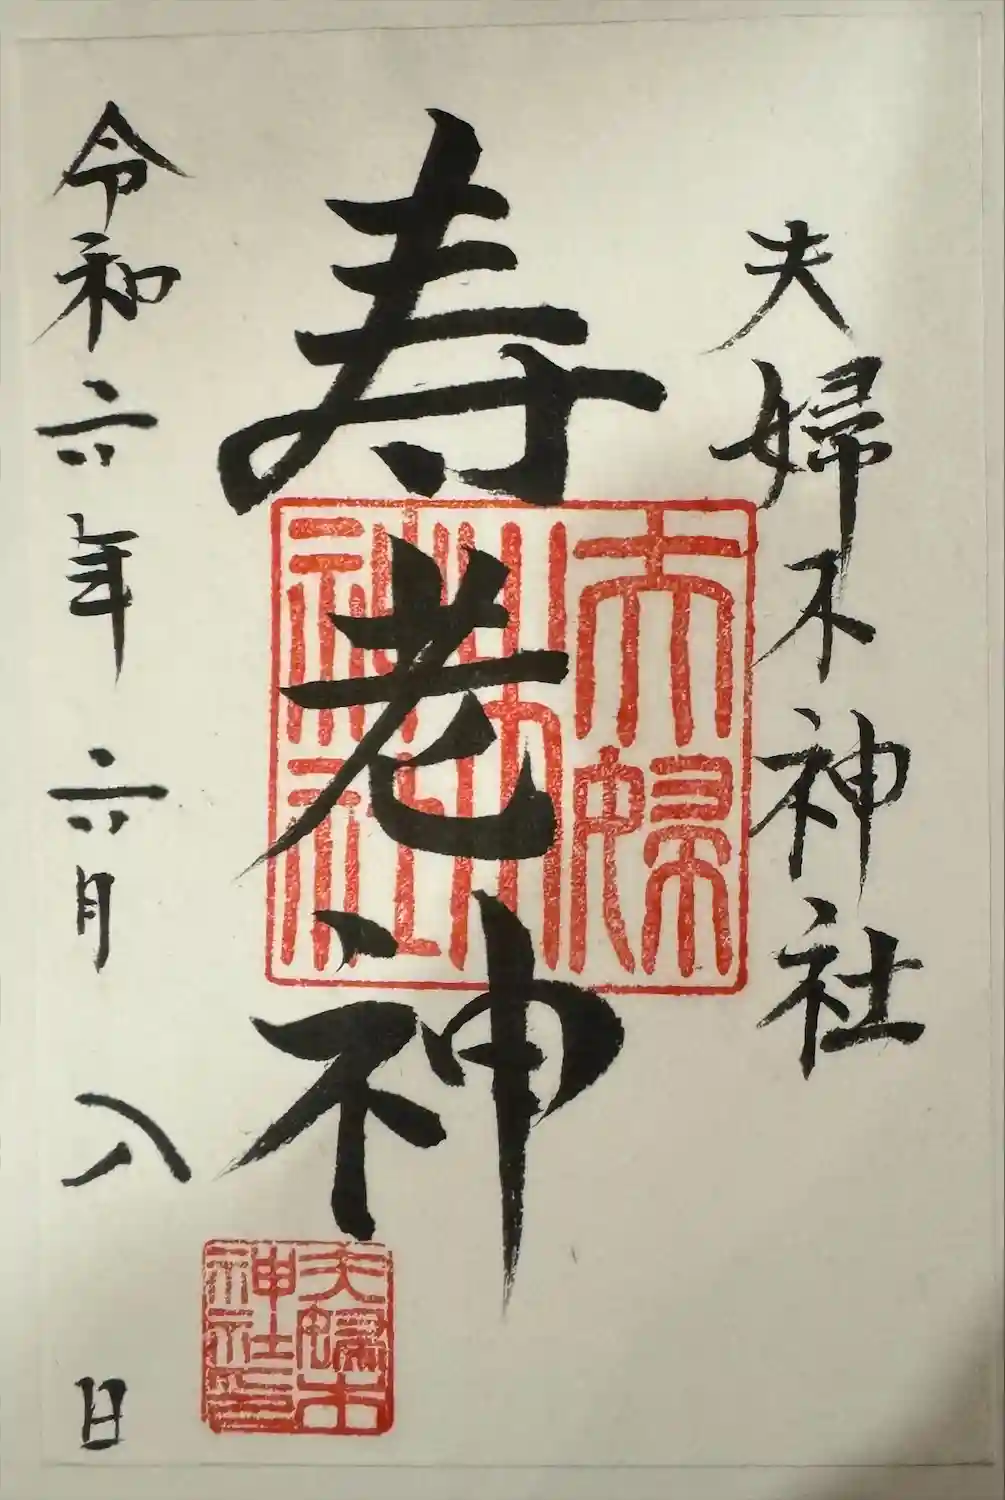 夫婦木神社
寿老神
夫婦
木
神社
夫婦木
神社印
令和六年六月八日